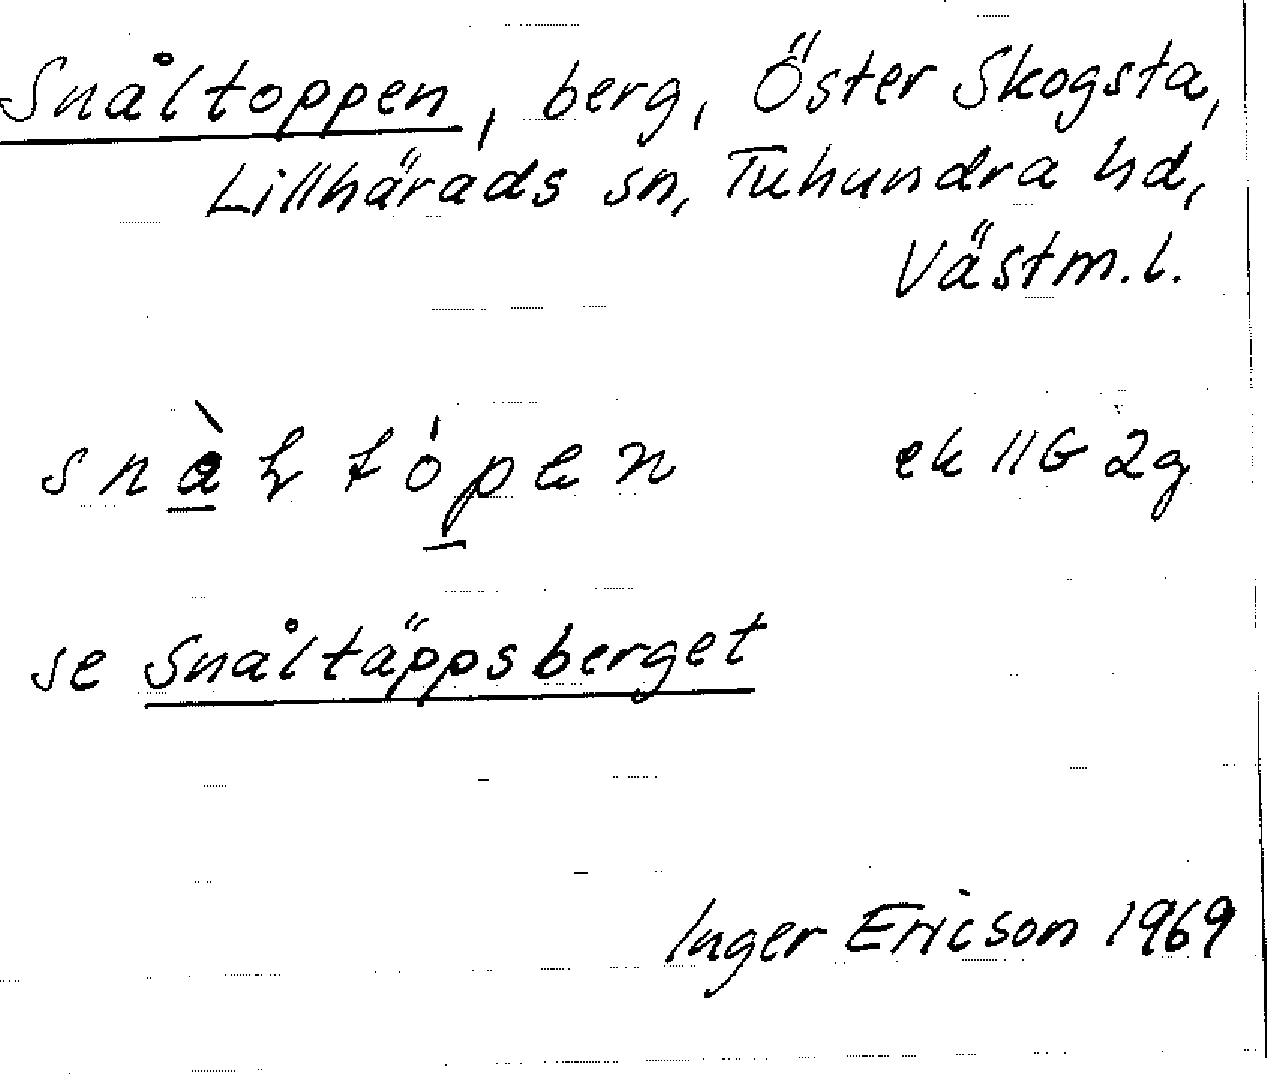 Snåltoppen, berg, Öster Skogsta,
Lillhärads sn, Tuhundra hd,
Västm.l.
ek 11G 2g
se Snåltäppsberget
Inger Ericson 1969